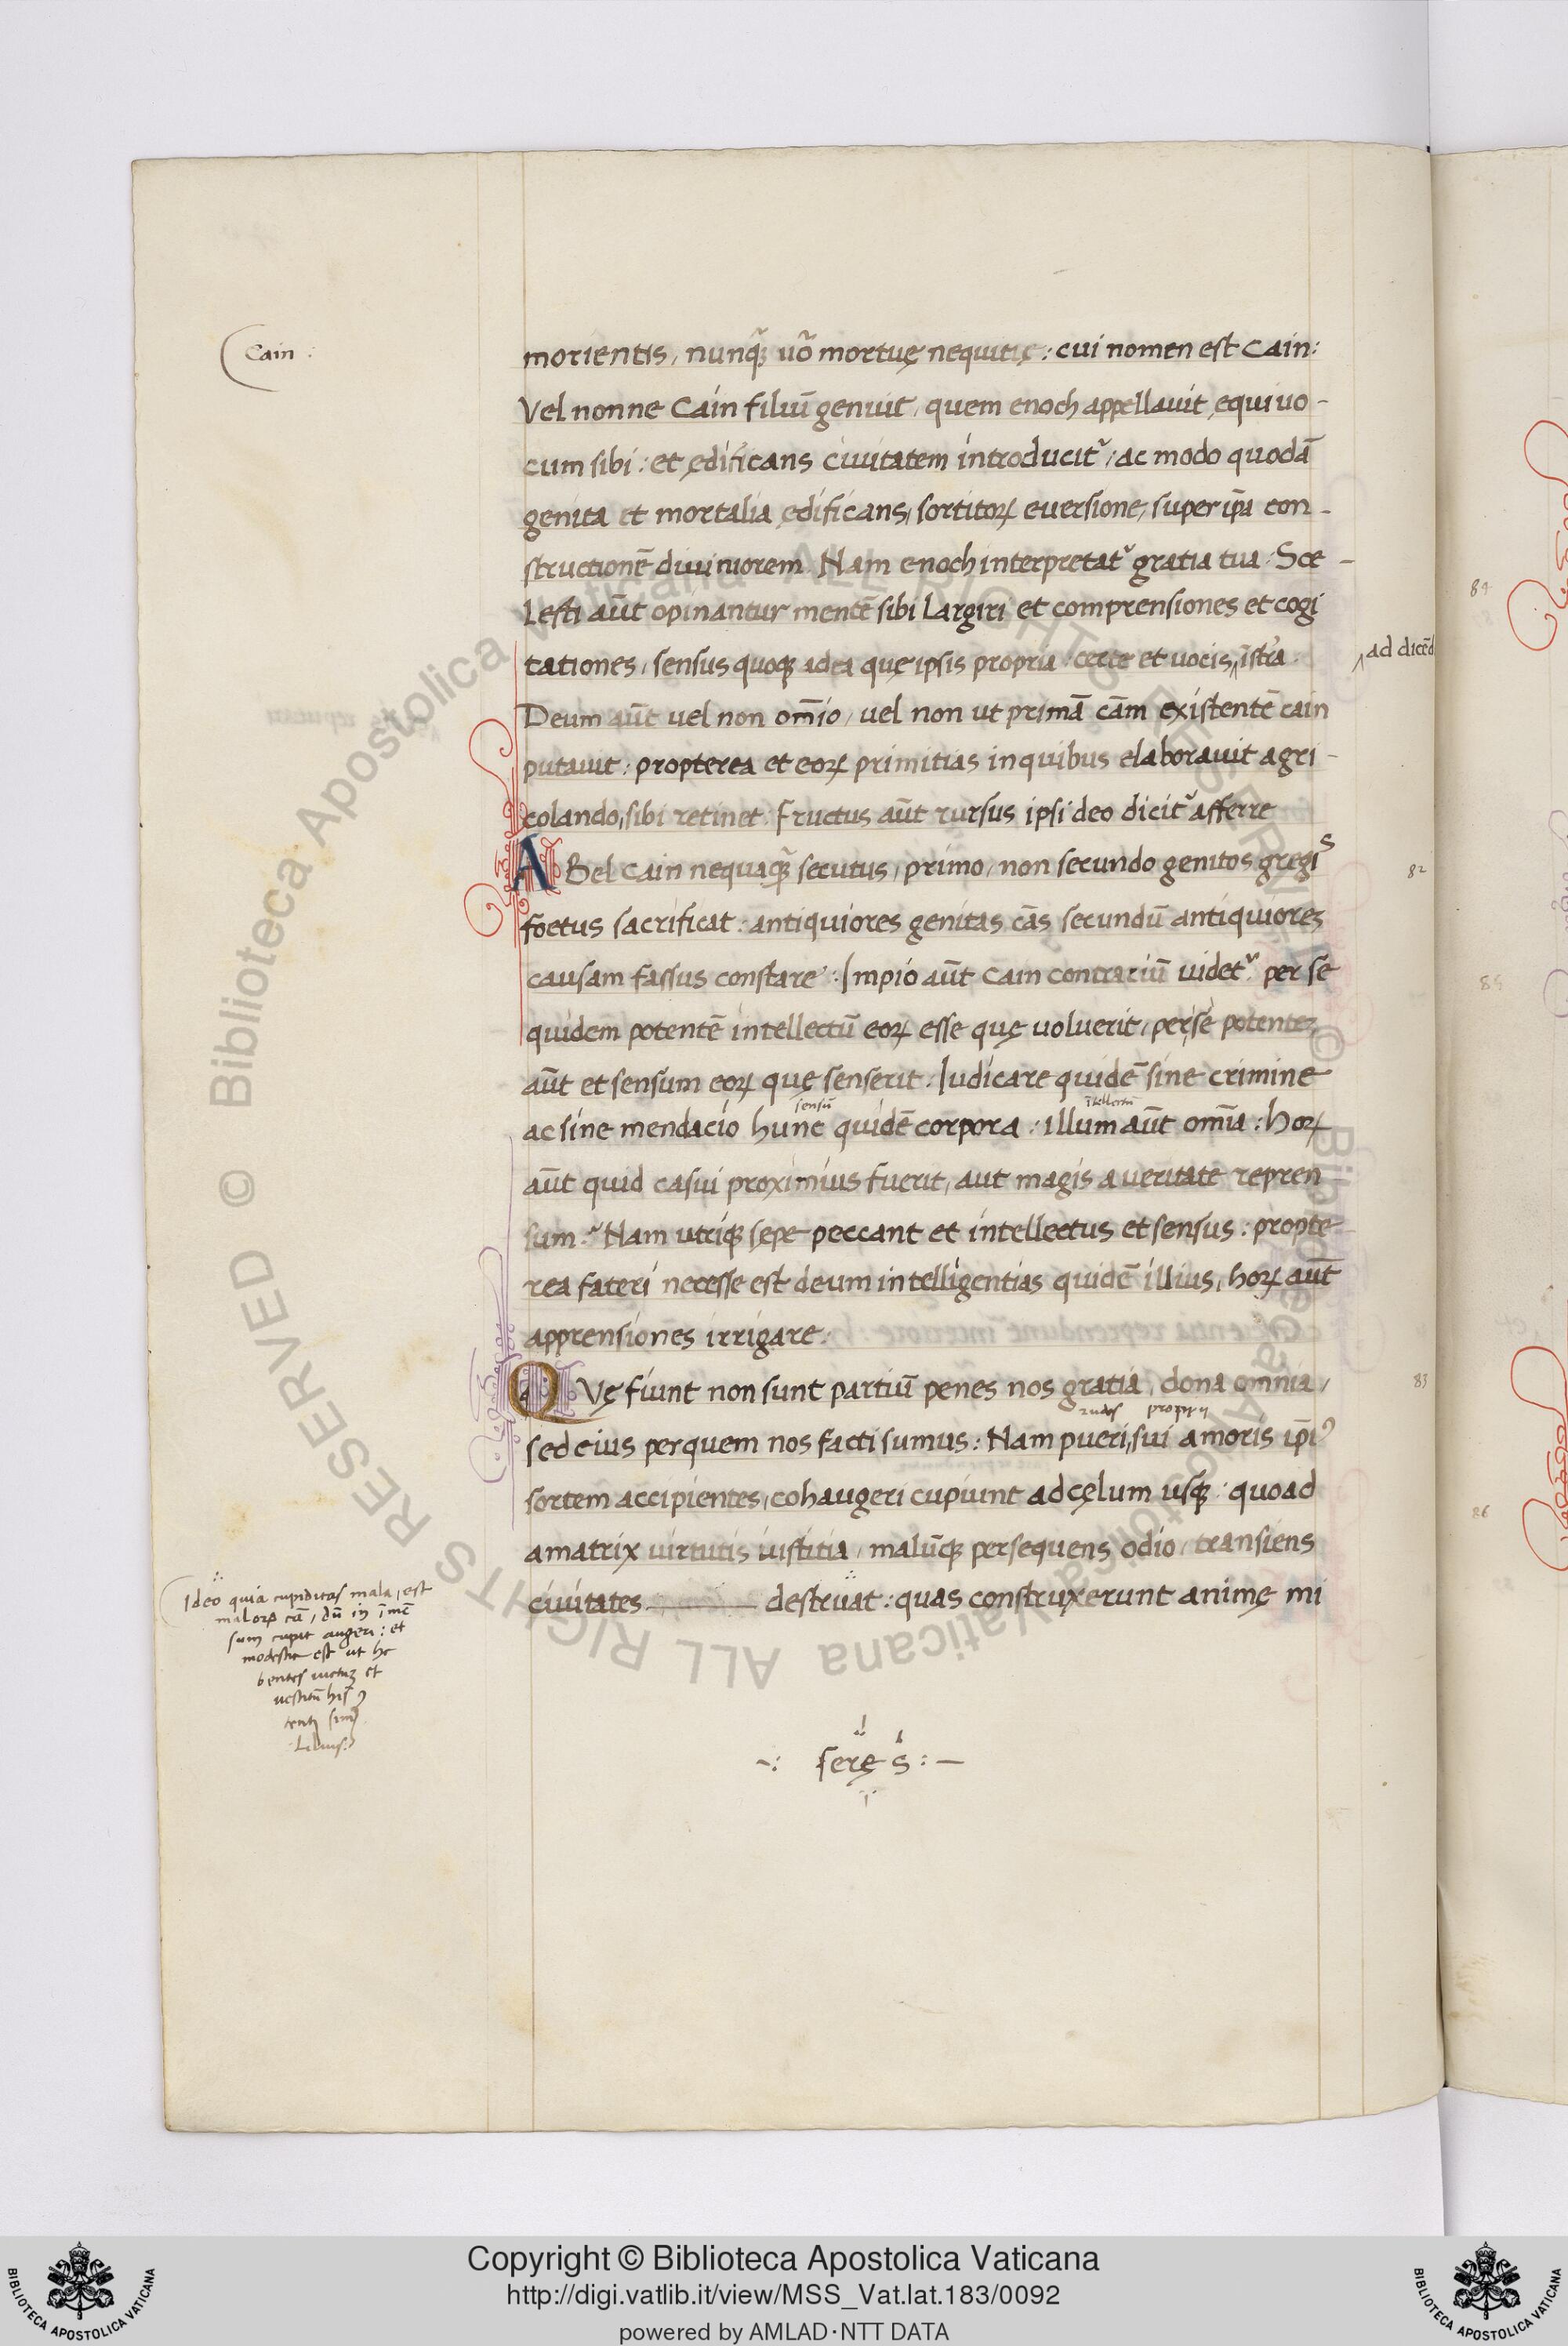 Cain :
morientis, nunq̃ꝫ uõ mortuę nequitię : cui nomen est Cain :
Vel nonne Cain filiū genuit, quem enoch appellauit ęquiuo -
cum sibi : et ędificans ciuitatem introducit᷑ : ac modo quodā
genita et mortalia ędificans, sortitoꝝ euersione, super ip̄a con -
structionē diuiniorem. Nam enoch interpretat᷑ gratia tua : Sce -
lesti aūt opinantur mentē sibi largiri et comprensiones et cogi
tationes, sensus quoqꝫ adea quę ipsis propria : certe et uocis ‸ istra
‸ ad dicēd
Deum aūt uel non om̄io, uel non ut primā cām existentē cain
putauit : propterea et eoꝝ primitias in quibus elaborauit agri -
colando, sibi retinet. Fructus aūt rursus ipsi deo dicit᷑ afferre
ABel Cain nequaq̃ꝫ secutus, primo, non secundo genitos gregis
foetus sacrificat : antiquiores genitas cās secundū antiquiorez
82
causam fassus constare : Impio aūt Cain contrariū uidet᷑ : per se
quidem potentē intellectū eoꝝ esse quę uoluerit, per se potentez
aūt et sensum eoꝝ quę senserit. Iudicare quidē sine crimine
sensū itellectū
ac sine mendacio hunc quidē corpora : illum aūt om̄ia : hoꝝ
aūt quid casui proximius fuerit, aut magis a ueritate repren
sum? Nam utriqꝫ sępe peccant et intellectus et sensus : propte
rea fateri necesse est deum intelligentias quidē illius, hoꝝ aūt
apprensiones irrigare :
QVę fiunt non sunt partiū penes nos gratia, dona omnia,
83
rudes proprii
sed eius per quem nos facti sumus : Nam pueri, sui amoris ip̄iꝰ
sortem accipientes, cohaugeri cupiunt ad cęlum usqꝫ : quoad
amatrix uirtutis iustitia, malūqꝫ persequens odio, transiens
ciuitates destruat : quas construxerunt animę mi
Ideo quia cupiditas mala, est
maloꝝ cā, dū in īmē
sum cupit augeri : et
modestie est ut ha
bentes uictuz et
uestitū his ꝯ
tenti simꝰ
-: serę s : -
84
85
86
© Biblioteca Apostolica Vaticana ALL RIGHTS RESERVED
Copyright © Biblioteca Apostolica Vaticana
http://digi.vatlib.it/view/MSS_Vat.lat.183/0092
powered by AMLAD·NTT DATA
BIBLIOTECA APOSTOLICA VATICANA
BIBLIOTECA APOSTOLICA VATICANA